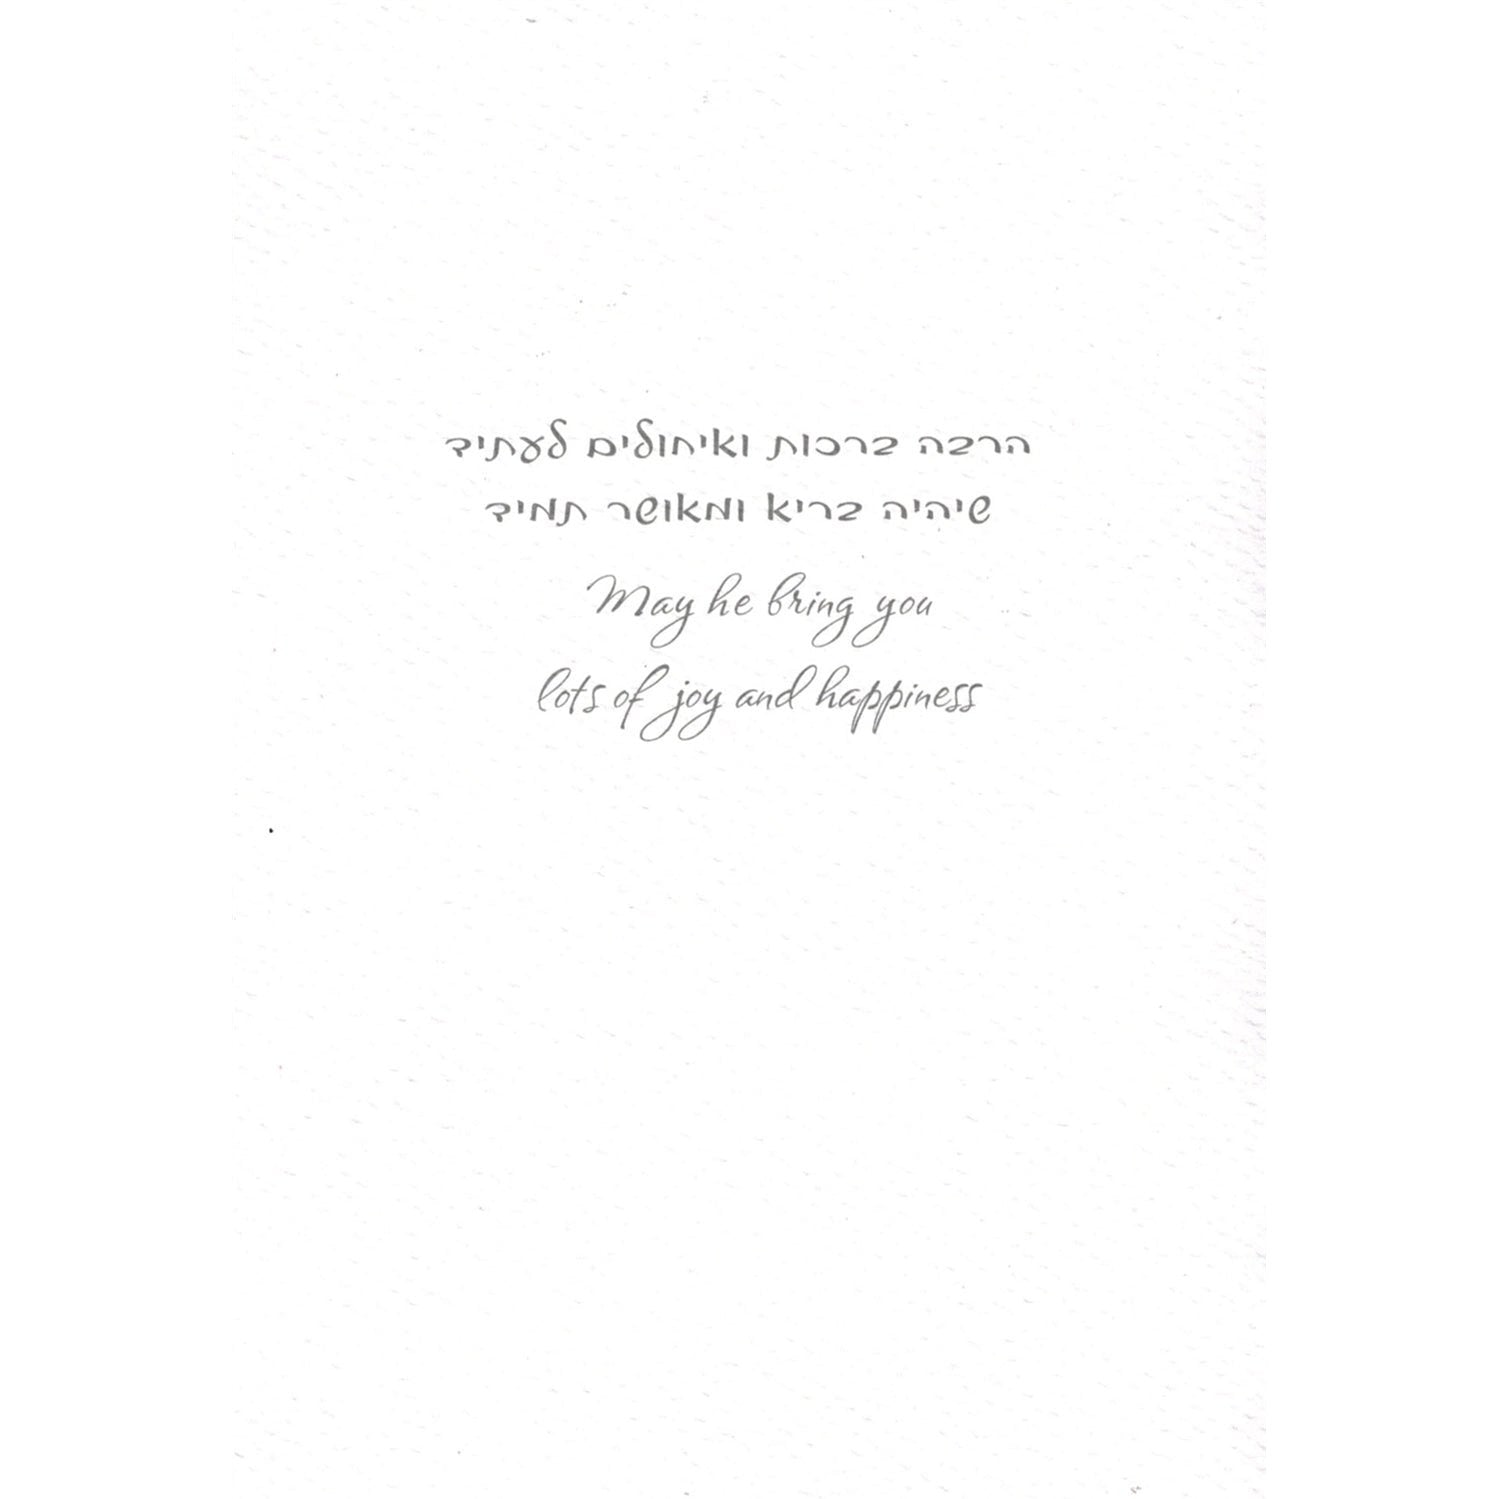 הרבה ברכות ואיחולים לעתיד
שיהיה בריא ומאושר תמיד
May he bring you
lots of joy and happiness